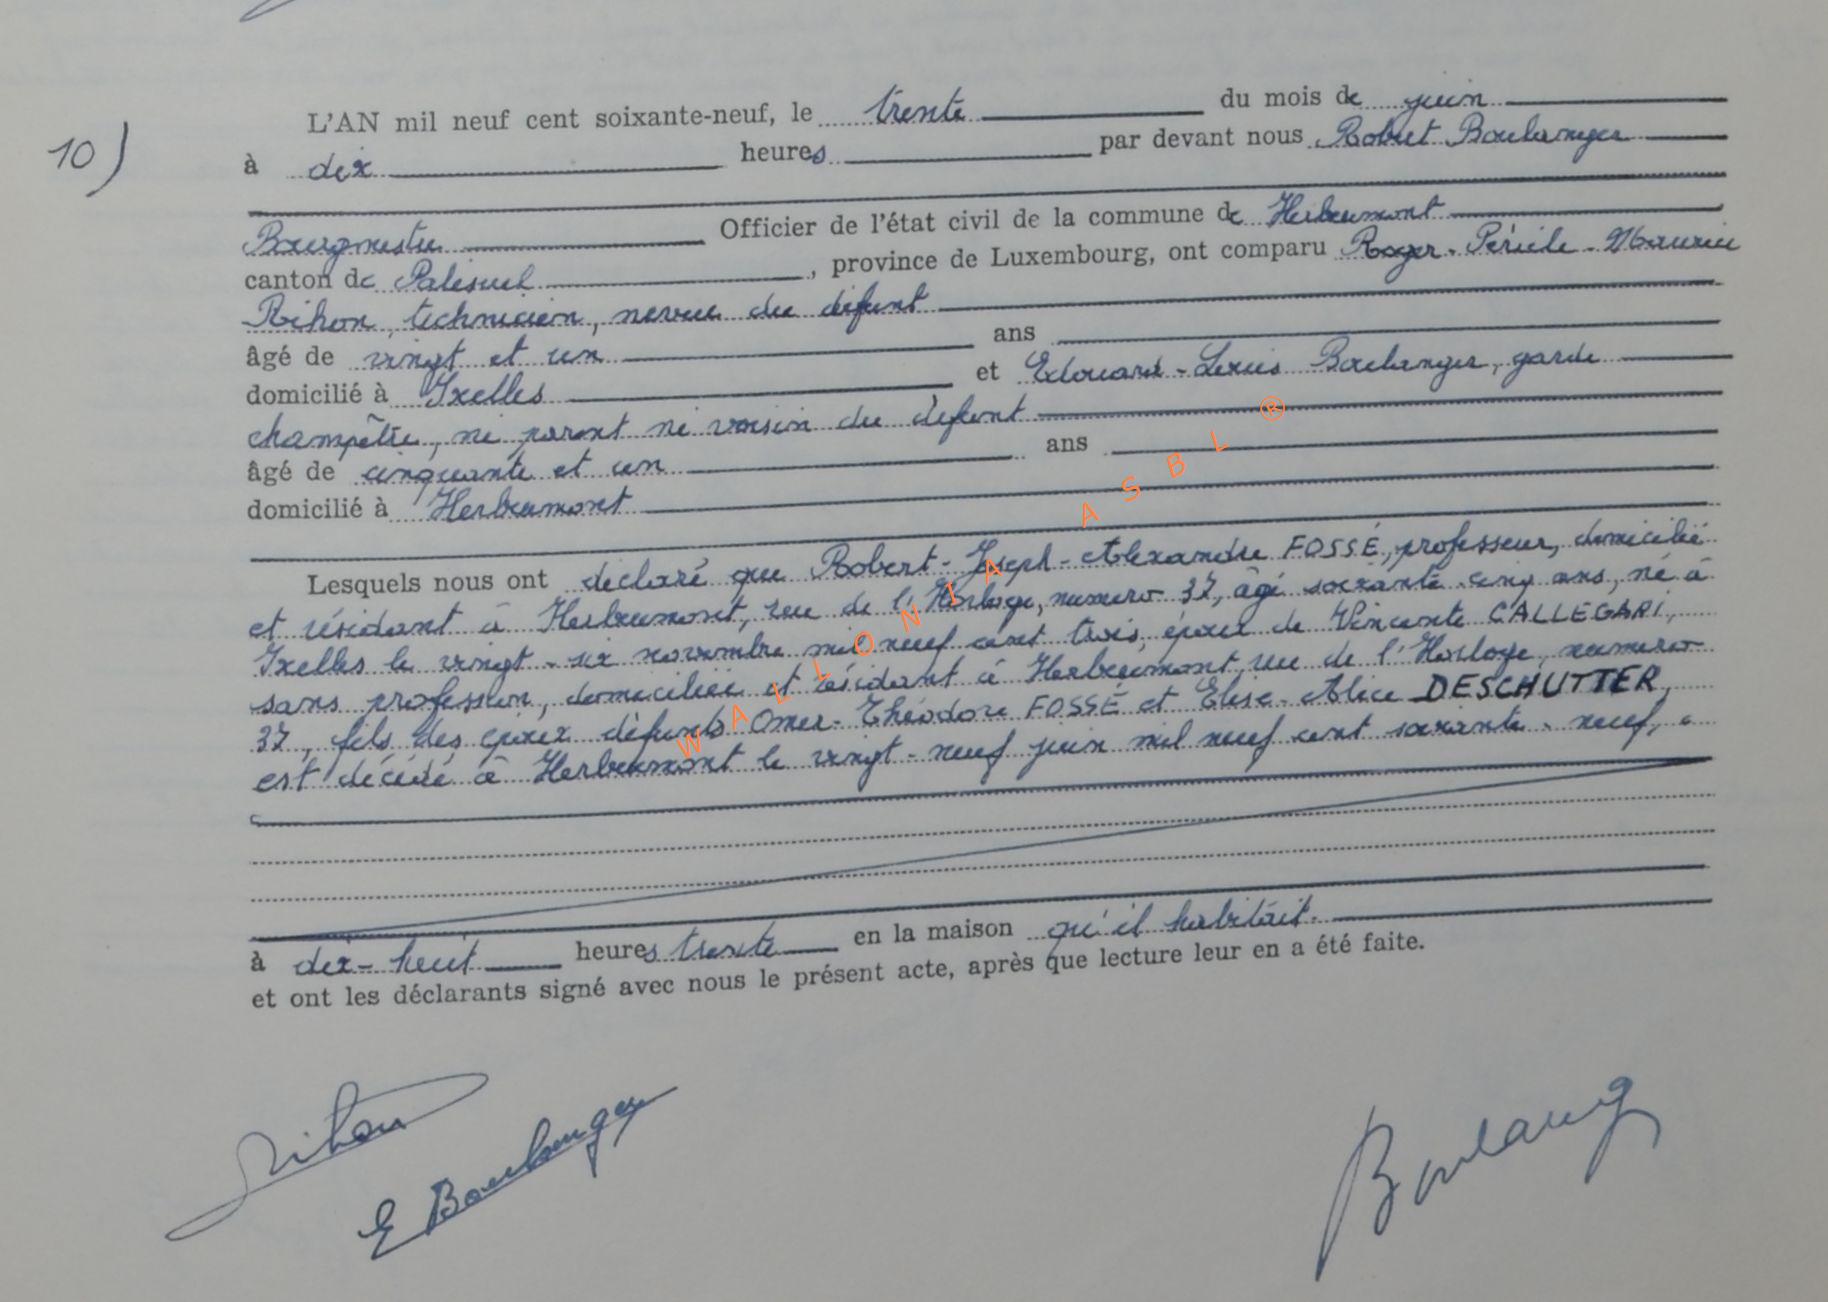 10)
L'AN mil neuf cent soixante-neuf, le trente du mois de juin
à dix heures par devant nous Robert Boulanger
Bourgmestre Officier de l'état civil de la commune de Herbeumont
canton de Paliseul, province de Luxembourg, ont comparu Roger-Péricle-Maurice
Rihon, technicien, neveu du défunt
âgé de vingt et un ans
domicilié à Ixelles et Edouard-Louis Boulanger, garde
champêtre, ni parent ni voisin du défunt
âgé de cinquante et un ans
domicilié à Herbeumont
Lesquels nous ont déclaré que Robert-Joseph-Alexandre FOSSÉ, professeur, domicilié
et résidant à Herbeumont, rue de l'Horloge, numéro 37, âgé soixante-cinq ans, né à
Ixelles le vingt-six novembre mil neuf cent trois, époux de Vincente CALLEGARI,
sans profession, domiciliée et résidant à Herbeumont, rue de l'Horloge, numéro
37, fils des époux défunts Omer-Théodore FOSSÉ et Elise-Alice DESCHUTTER,
est décédé à Herbeumont le vingt-neuf juin mil neuf cent soixante-neuf,
à dix-huit heures trente en la maison qu'il habitait.
et ont les déclarants signé avec nous le présent acte, après que lecture leur en a été faite.
Rihon
E Boulanger
Boulanger
WALLONIA ASBL ®